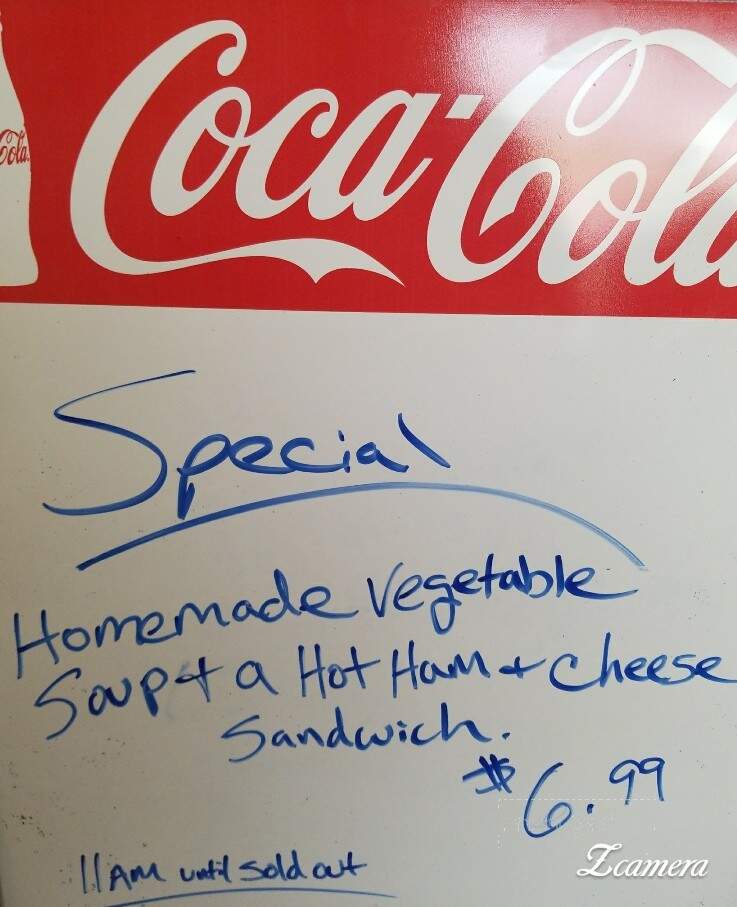 Coca-Cola
Cola
Special
Homemade Vegetable
Soup + a Hot Ham + cheese
Sandwich.
$6.99
11 AM until sold out
Zcamera